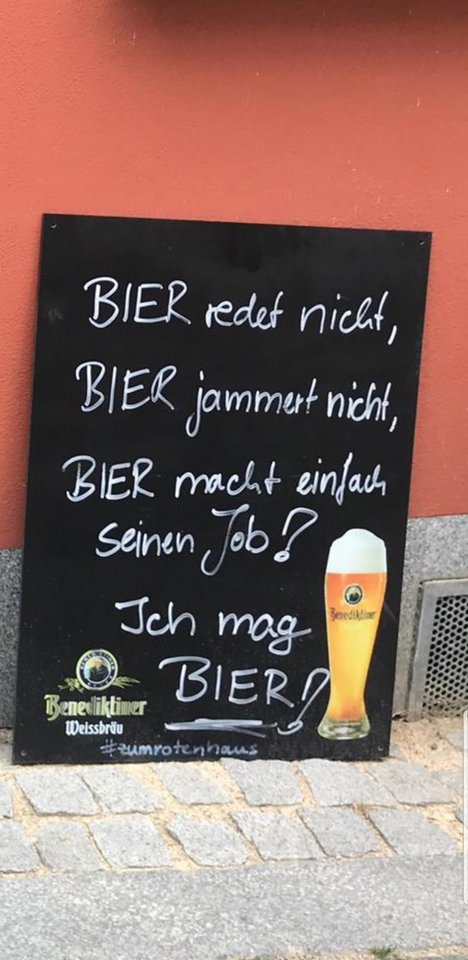 BIER redet nicht,
BIER jammert nicht,
BIER macht einfach
seinen Job!
Ich mag
BIER!
Benediktiner
Benediktiner
Weissbräu
#zumrotenhaus